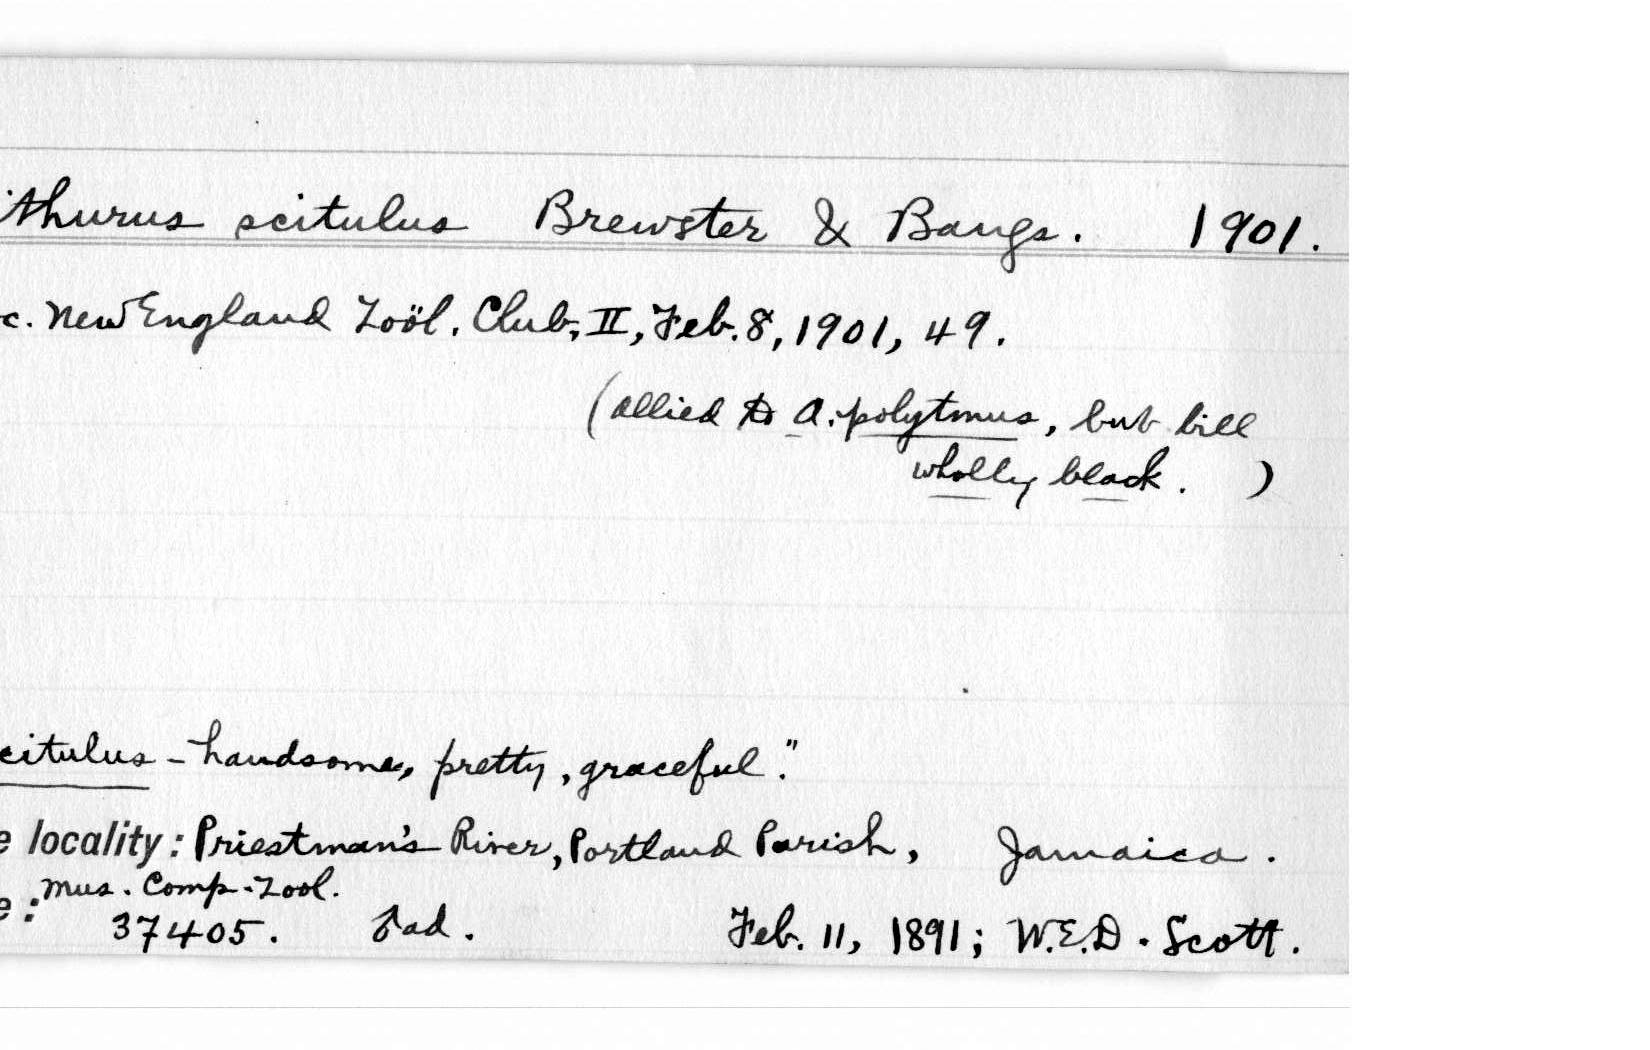 ithurus scitulus Brewster & Bangs. 1901.
c. New England Zoöl. Club, II, Feb. 8, 1901, 49.
(allied to A. polytmus, but bill
wholly black. )
citulus - handsome, pretty, graceful."
e locality: Priestman's River, Portland Parish, Jamaica.
e: Mus. Comp. Zool.
37405. ad. Feb. 11, 1891; W.E.D. Scott.